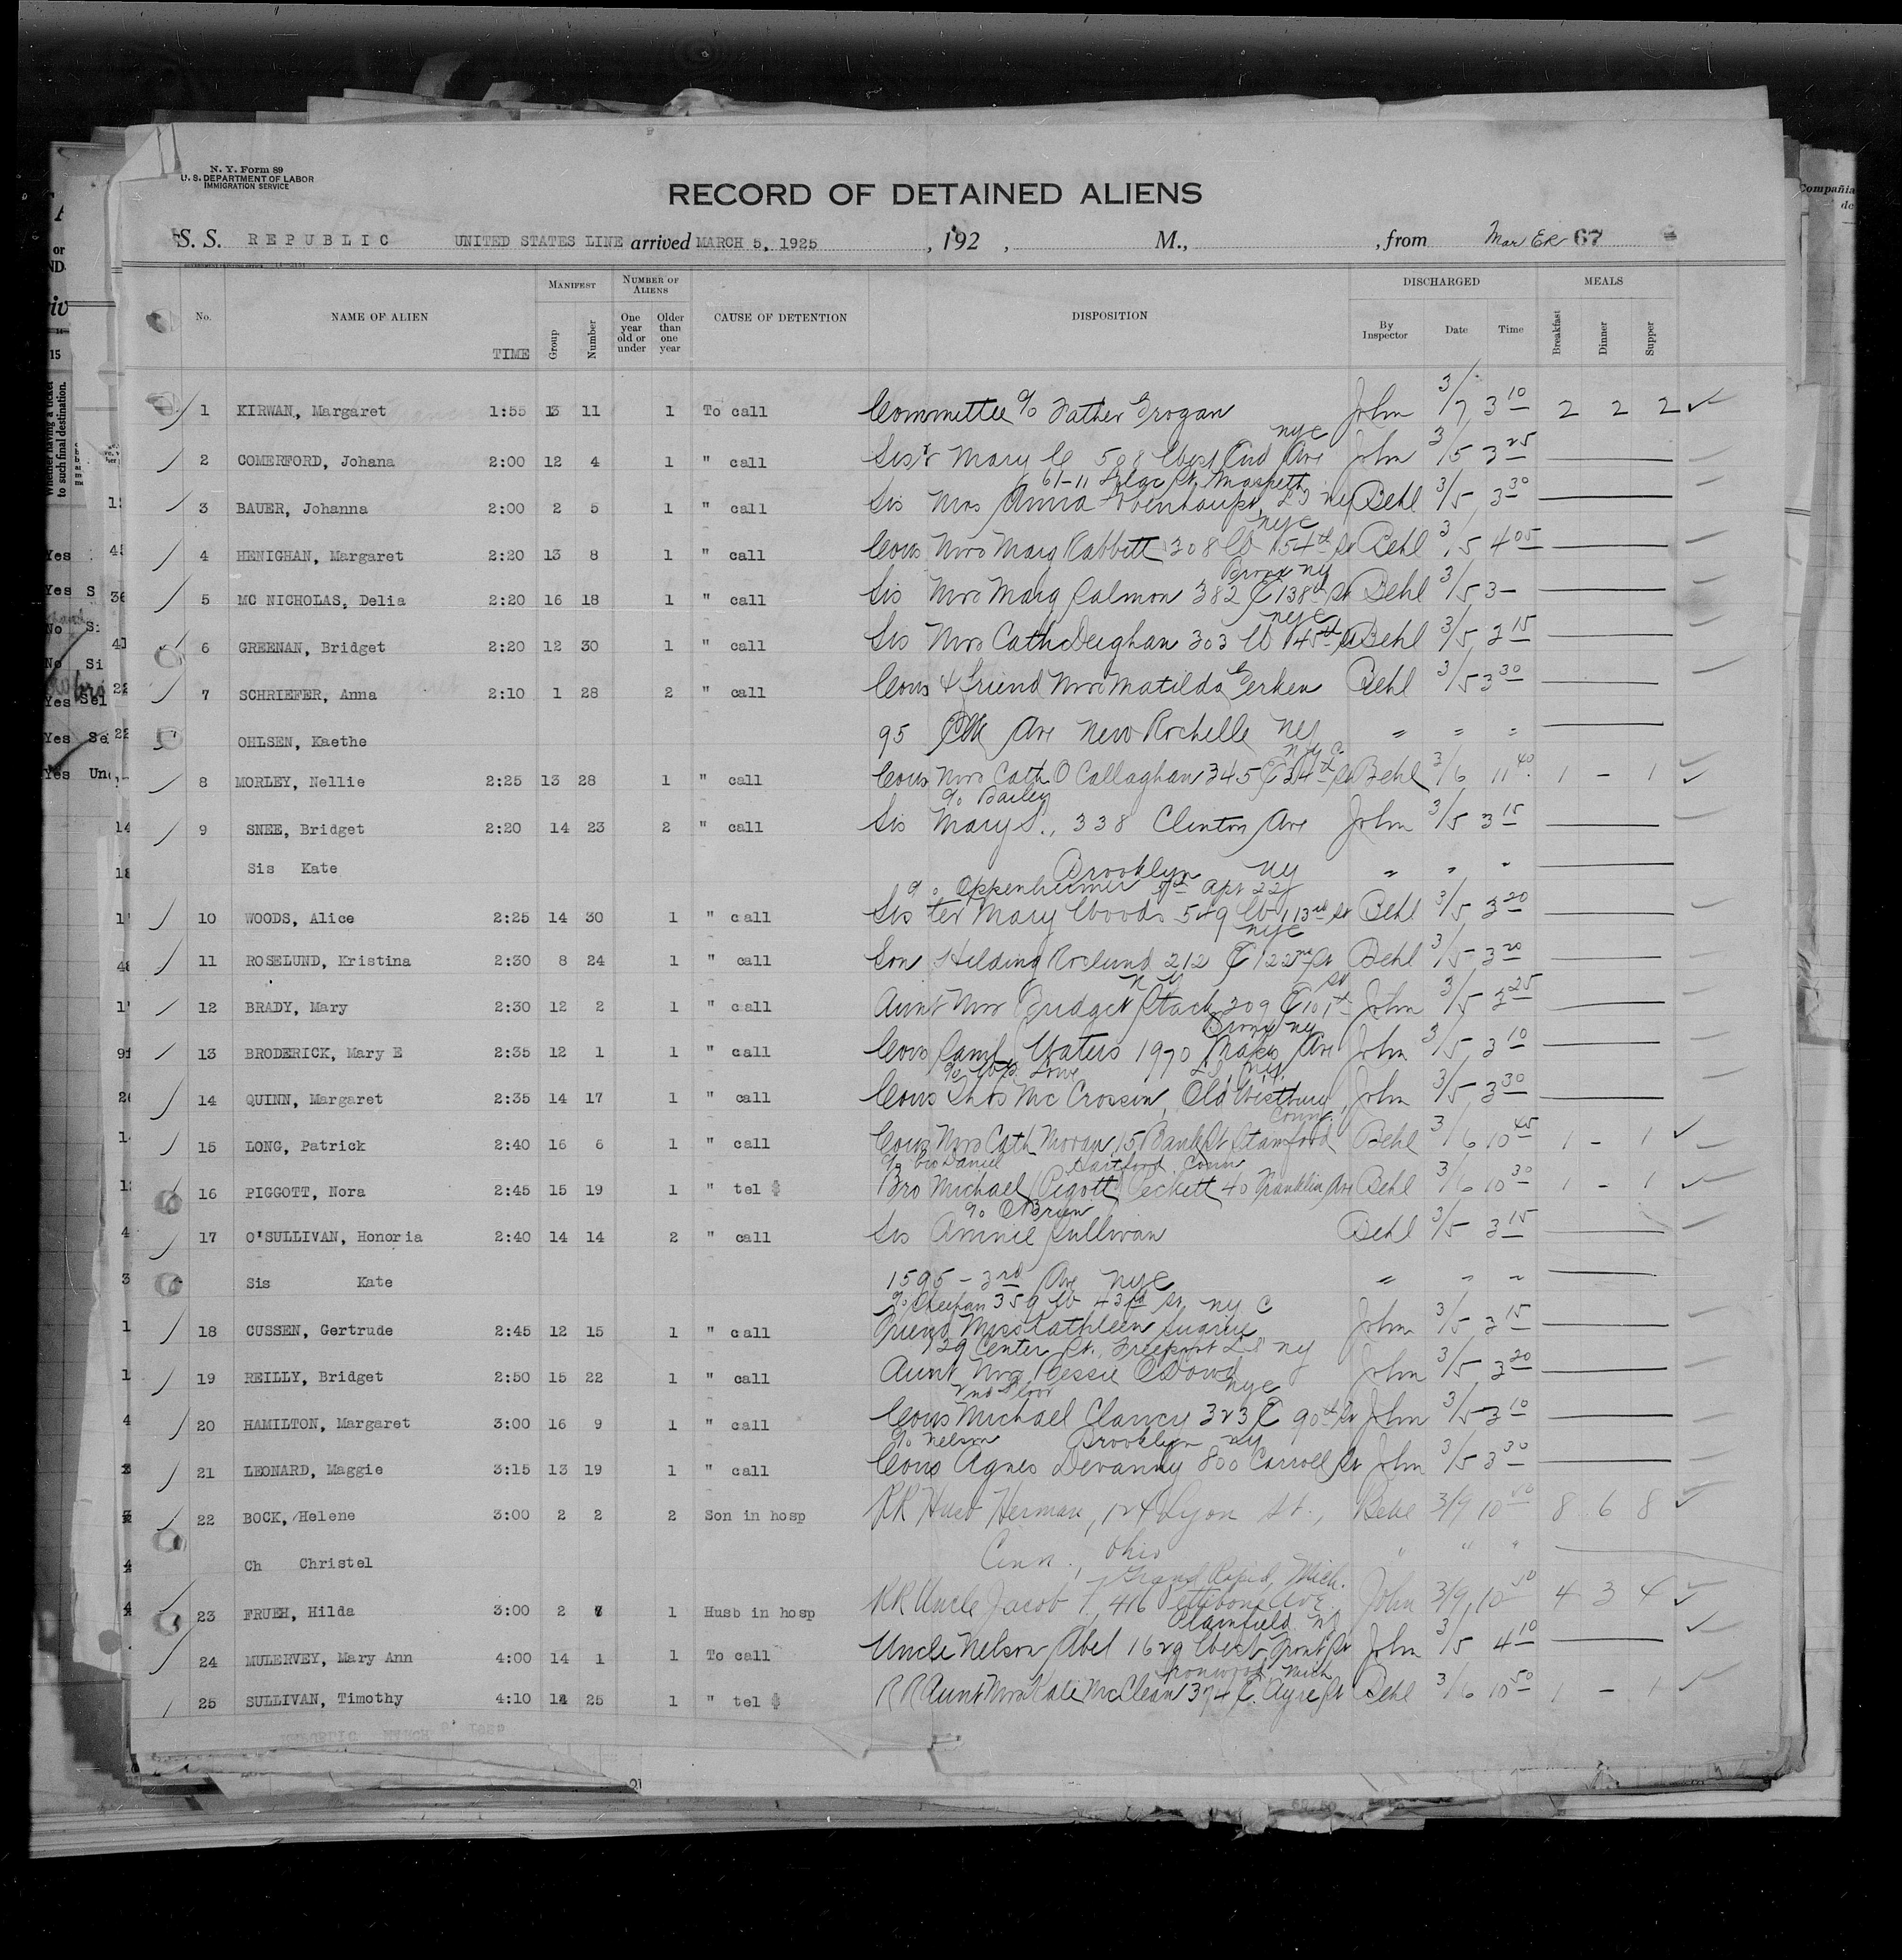 N. Y. Form 89
U. S. DEPARTMENT OF LABOR
IMMIGRATION SERVICE
RECORD OF DETAINED ALIENS
S. S. REPUBLIC UNITED STATES LINE arrived MARCH 5, 1925 , 192 , M., , from Mar ER 67
No. NAME OF ALIEN TIME MANIFEST Group Number NUMBER OF ALIENS One year old or under Older than one year CAUSE OF DETENTION DISPOSITION DISCHARGED By Inspector Date Time MEALS Breakfast Dinner Supper
1 KIRWAN, Margaret 1:55 13 11 1 To call Committee c/o Father Grogan John 3/7 3 10 2 2 2
nyc
2 COMERFORD, Johana 2:00 12 4 1 " call Sis Mary C 508 West End Ave John 3/5 3 25
Maspeth
3 BAUER, Johanna 2:00 2 5 1 " call Sis Mrs Anna L I ny Behl 3/5 3 30
nyc
4 HENIGHAN, Margaret 2:20 13 8 1 " call Cous Mrs Marg Rabbitt 308 W 154th St Behl 3/5 4 05
Bronx ny
5 MC NICHOLAS, Delia 2:20 16 18 1 " call Sis Mrs Marg Salmon 382 E 138th St Behl 3/5 3 -
nyc
6 GREENAN, Bridget 2:20 12 30 1 " call Sis Mrs Cath Deighan 303 W 145th St Behl 3/5 3 15
7 SCHRIEFER, Anna 2:10 1 28 2 " call Cous & friend Mrs Matilda Gerken Behl 3/5 3 30
OHLSEN, Kaethe 95 Elk Ave New Rochelle ny " " "
NYC
8 MORLEY, Nellie 2:25 13 28 1 " call Cous Mrs Cath O Callaghan 345 E 34th St Behl 3/6 11 40 1 - 1
c/o Bailey
9 SNEE, Bridget 2:20 14 23 2 " call Sis Mary S., 338 Clinton Ave John 3/5 3 15
Sis Kate Brooklyn ny " " "
c/o Oppenheimer apt 22
10 WOODS, Alice 2:25 14 30 1 " call Sister Mary Woods 549 W 113rd St Behl 3/5 3 20
nyc
11 ROSELUND, Kristina 2:30 8 24 1 " call Son Hilding Roslund 212 E 122nd St Behl 3/5 3 20
N Y St
12 BRADY, Mary 2:30 12 2 1 " call Aunt Mrs Bridget Stack 209 E 101st John 3/5 3 25
Bronx ny
13 BRODERICK, Mary E 2:35 12 1 1 " call Cous Saml Waters 1970 Ave John 3/5 3 10
L I NY.
14 QUINN, Margaret 2:35 14 17 1 " call Cous Thos McCrossin, Old Westbury, John 3/5 3 30
Conn.
15 LONG, Patrick 2:40 16 6 1 " call Cous Mrs Cath Moran, 15 Bank St Stamford Behl 3/6 10 45 1 - 1
Daniel Hartford Conn
16 PIGGOTT, Nora 2:45 15 19 1 " tel $ Bro Michael Pigott Peckett 40 Franklin Ave Behl 3/6 10 30 1 - 1
c/o O'Brien
17 O'SULLIVAN, Honoria 2:40 14 14 2 " call Sis Annie Sullivan Behl 3/5 3 15
Sis Kate 1595 - 3rd Ave nyc " " "
c/o Sheehan 359 W 43rd St. ny. C
18 CUSSEN, Gertrude 2:45 12 15 1 " call Friend Miss Kathleen Sugrue John 3/5 3 15
29 Center St. Freeport L I ny
19 REILLY, Bridget 2:50 15 22 1 " call Aunt Mrs Bessie O'Dowd John 3/5 3 20
2nd Floor nyc
20 HAMILTON, Margaret 3:00 16 9 1 " call Cous Michael Clancy 323 E 90th St John 3/5 3 10
c/o Nelson Brooklyn ny
21 LEONARD, Maggie 3:15 13 19 1 " call Cous Agnes Devanny 800 Carroll St John 3/5 3 30
22 BOCK, Helene 3:00 2 2 2 Son in hosp RR Husb Herman, 124 Lyon St., Behl 3/9 10 50 8 6 8
Ch Christel Cinn., Ohio " " "
Grand Rapid, Mich.
23 FRUEH, Hilda 3:00 2 7 1 Husb in hosp RR Uncle Jacob F., 416 Pettibone Ave. John 3/9 10 50 4 3 4
Plainfield NJ
24 MULERVEY, Mary Ann 4:00 14 1 1 To call Uncle Nelson Abel 1629 West Front St John 3/5 4 10
Ironwood Mich
25 SULLIVAN, Timothy 4:10 14 25 1 " tel $ RR Aunt Mrs Kate McClean 374 E. Ayre St Behl 3/6 10 50 1 - 1